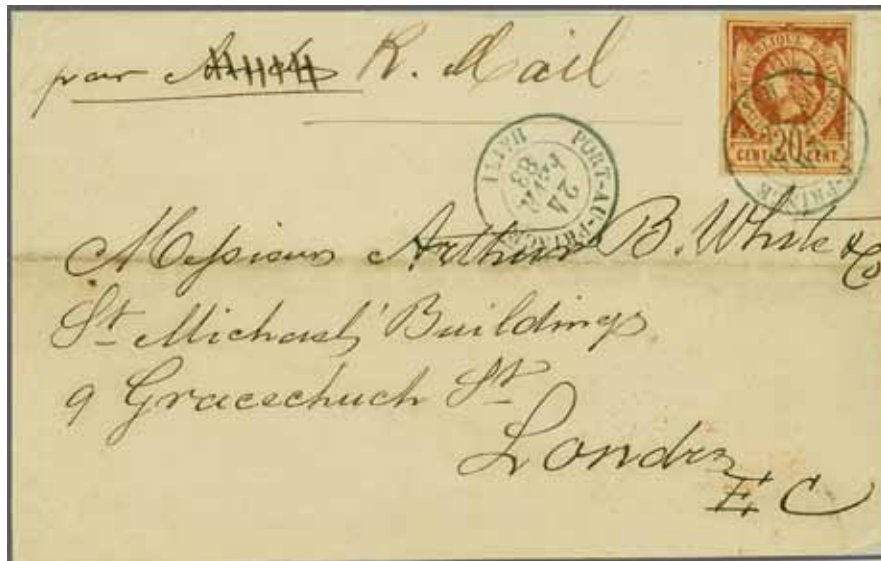 par R. Mail
REPUBLIQUE D'HAITI
20
CENT. CENT.
HAITI PORT-AU-PRINCE
24
83
Messieurs Arthur B. White & Co
St Michael' Buildings
9 Gracechuch St
Londres
E C